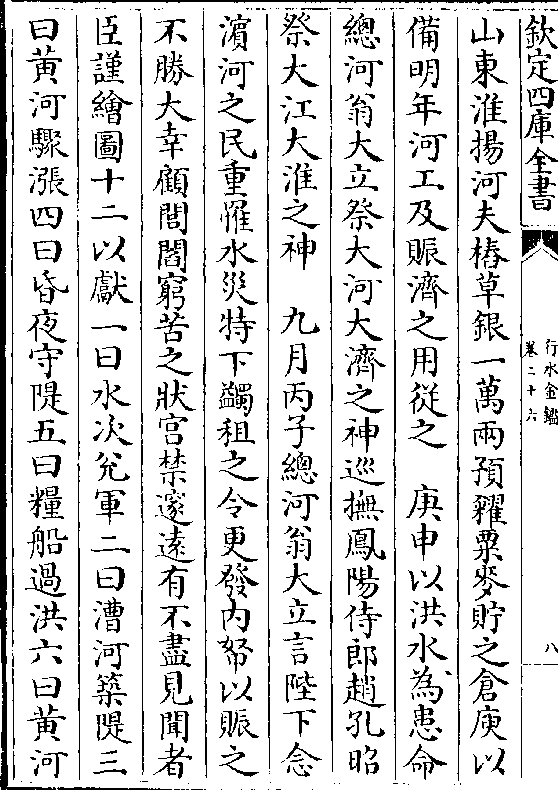 欽定四庫全書
行水金鑑
卷二十六
八
山東淮揚河夫樁草銀一萬兩預糴粟麥貯之倉庾以
備明年河工及賑濟之用從之　庚申以洪水為患命
總河翁大立祭大河大濟之神巡撫鳳陽侍郎趙孔昭
祭大江大淮之神　九月丙子總河翁大立言陛下念
濱河之民重罹水災特下蠲租之令更發內帑以賑之
不勝大幸顧閭閻窮苦之狀宮禁邃遠有不盡見聞者
臣謹繪圖十二以獻一曰水次兊軍二曰漕河築隄三
曰黃河驟漲四曰昏夜守隄五曰糧船過洪六曰黃河